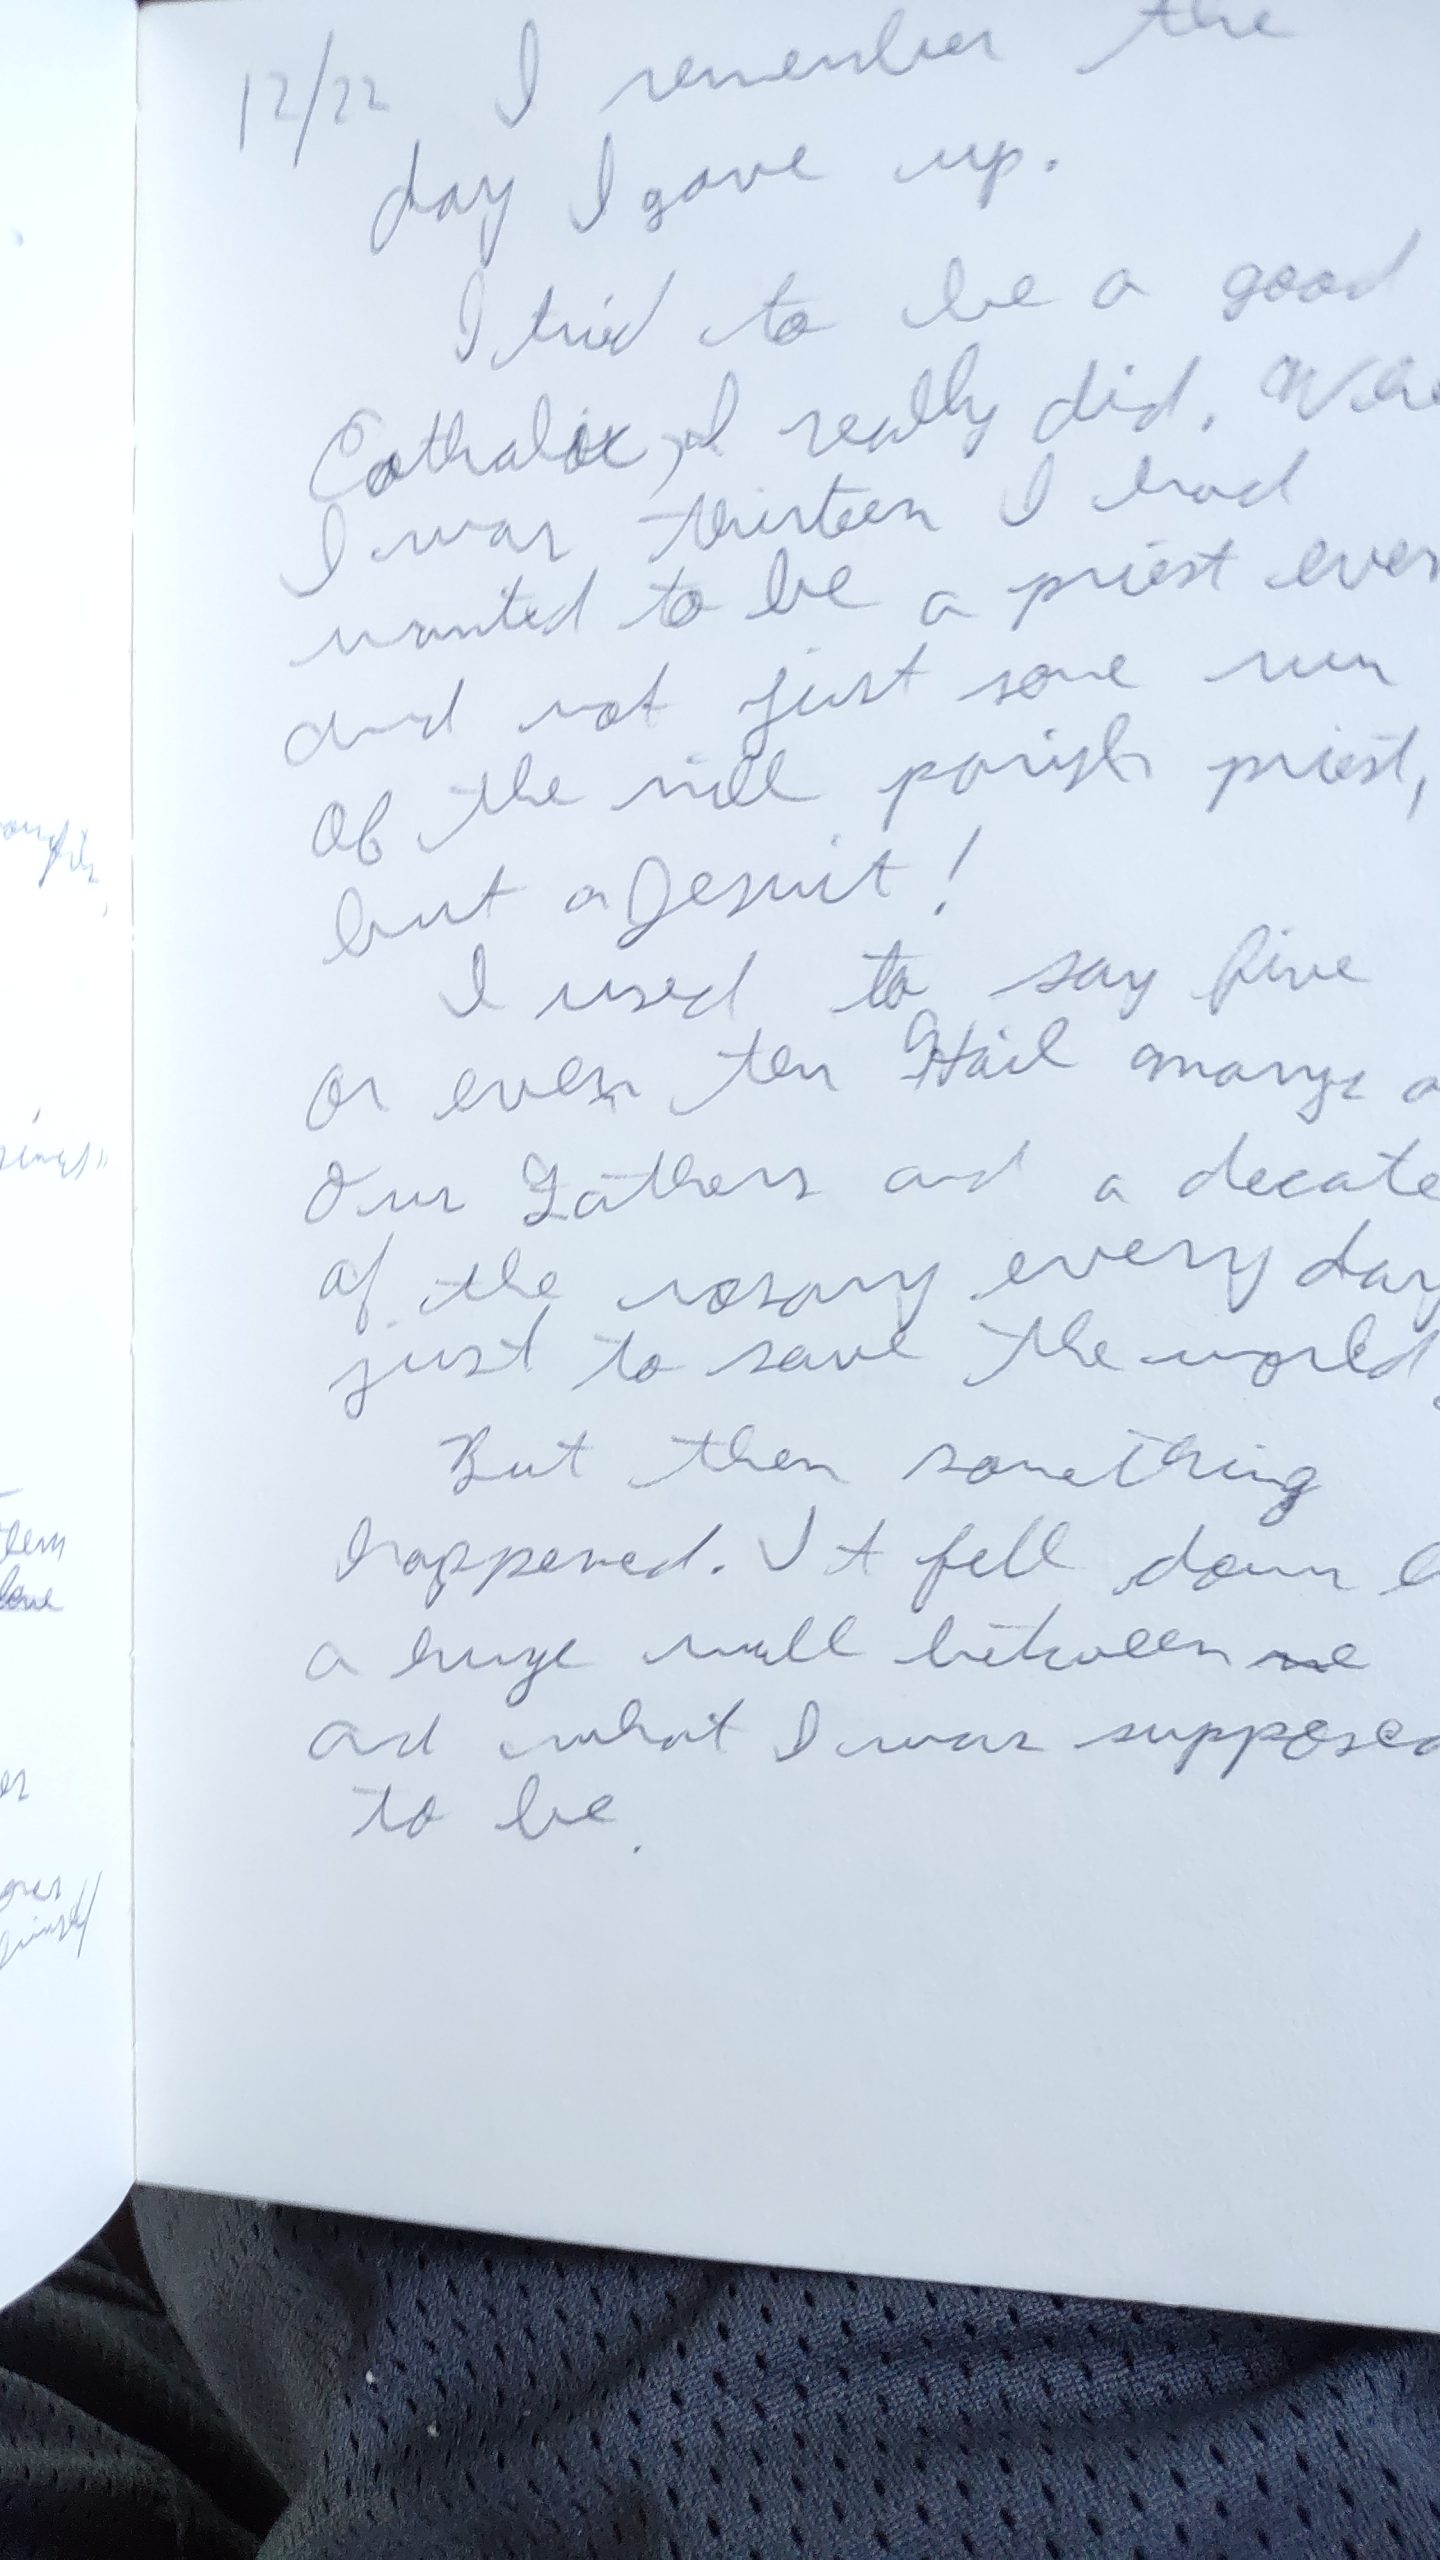 12/22 I remember the
day I gave up.
I tried to be a good
Catholic, I really did. Whe
I was thirteen I had
wanted to be a priest even
and not just some run
of the mill parish priest,
but a Jesuit!
I used to say five
or even ten Hail marys a
Our Fathers and a decate
of the rosary every day
just to save the world.
But then something
happened. It fell down l
a huge wall between me
and what I was supposed
to be.